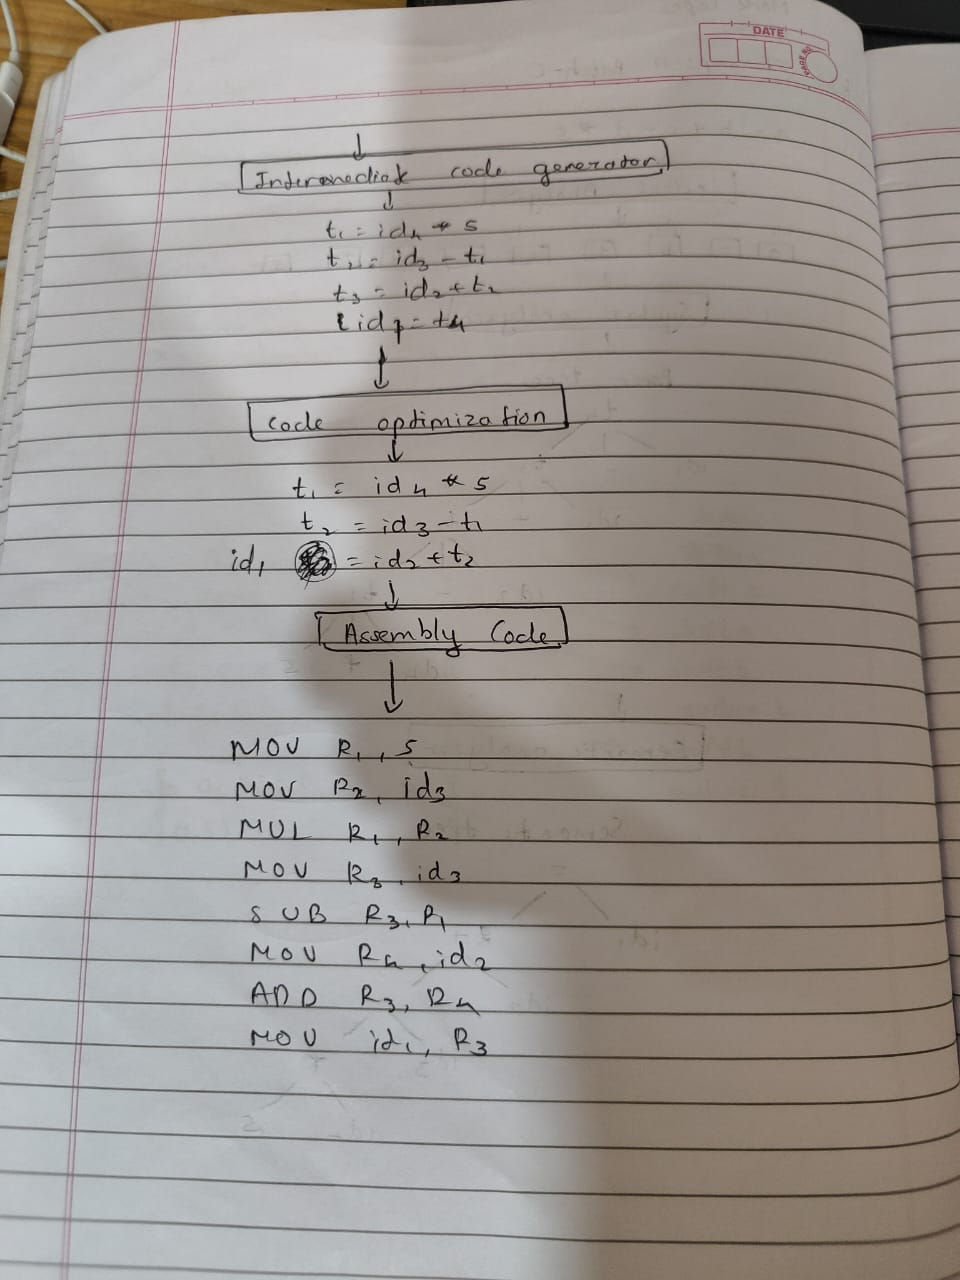 DATE
PAGE NO
Intermediate code generator
t₁ = id₄ * 5
t₂ = id₃ - t₁
t₃ = id₂ + t₂
id₁ = t₄
Code optimization
t₁ = id₄ * 5
t₂ = id₃ - t₁
id₁ = id₂ + t₂
Assembly Code
MOV R₁, 5
MOV R₂, id₃
MUL R₁, R₂
MOV R₃, id₃
SUB R₃, R₁
MOV R₄, id₂
ADD R₃, R₄
MOV id₁, R₃